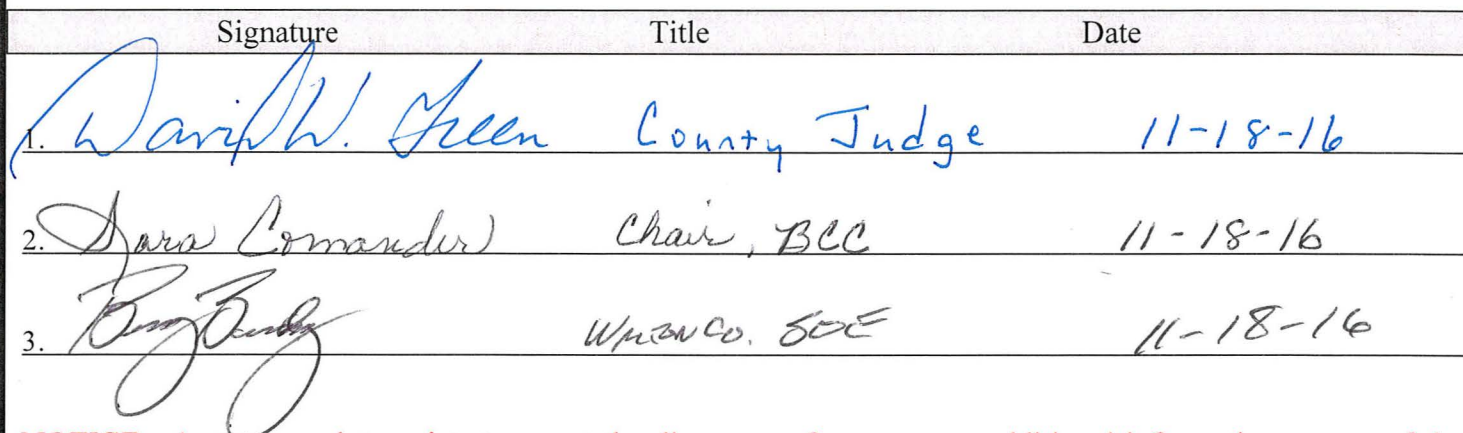 Signature Title Date
1. David W. Green County Judge 11-18-16
2. Sara Comander Chair, BCC 11-18-16
3. Co. SOE 11-18-16